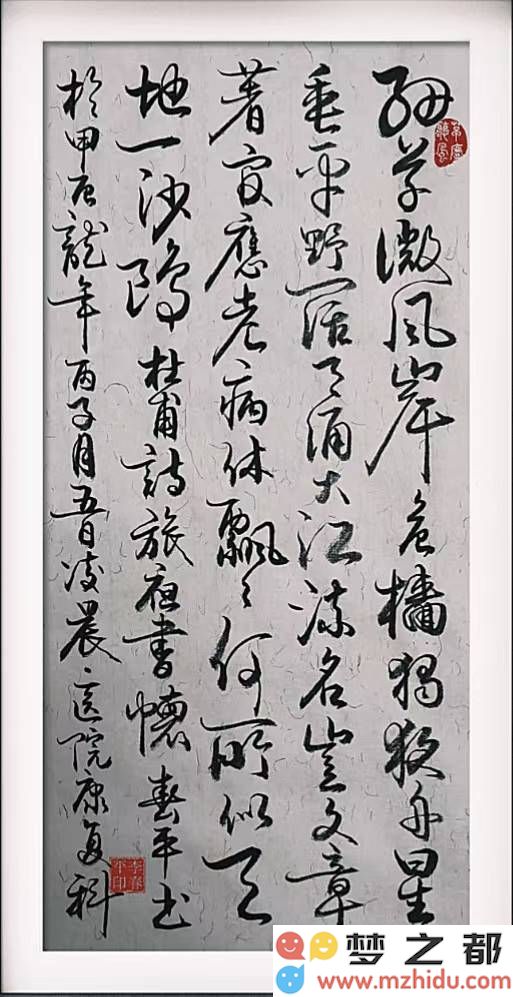 細草微風岸危樯獨夜舟星
垂平野闊月涌大江流名豈文章
著官應老病休飄〻何所似天
地一沙鷗 杜甫詩旅夜書懷 春平书
於甲辰龍年丙子月五日凌晨医院康复科
李春平印
梦之都
www.mzhidu.com